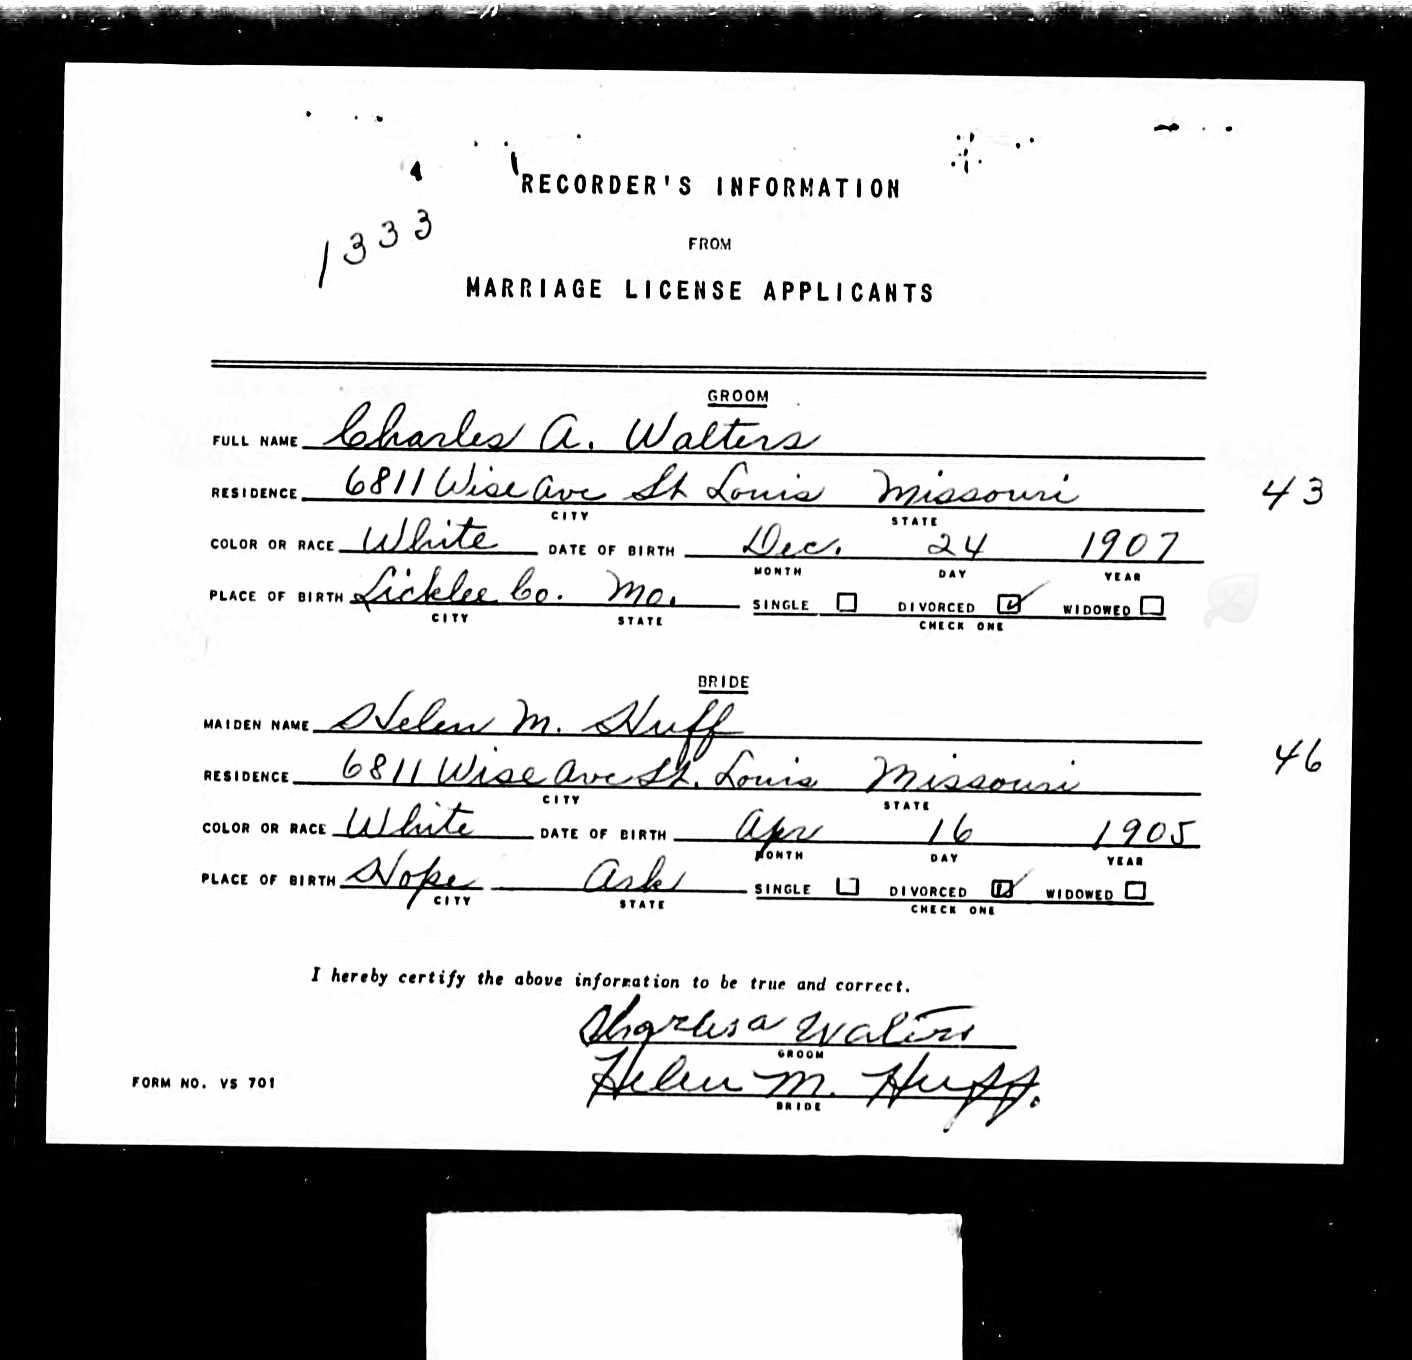 RECORDER'S INFORMATION
1333
FROM
MARRIAGE LICENSE APPLICANTS
GROOM
FULL NAME Charles A. Walters
RESIDENCE 6811 Wise Ave St Louis Missouri 43
CITY STATE
COLOR OR RACE White DATE OF BIRTH Dec. 24 1907
MONTH DAY YEAR
PLACE OF BIRTH Co. Mo. SINGLE DIVORCED WIDOWED
CITY STATE CHECK ONE
BRIDE
MAIDEN NAME Helen M. Huff
RESIDENCE 6811 Wise Ave St. Louis Missouri 46
CITY STATE
COLOR OR RACE White DATE OF BIRTH Apr 16 1905
MONTH DAY YEAR
PLACE OF BIRTH Hope Ark SINGLE DIVORCED WIDOWED
CITY STATE CHECK ONE
I hereby certify the above information to be true and correct.
Charles A Walters
GROOM
Helen M. Huff.
BRIDE
FORM NO. VS 701